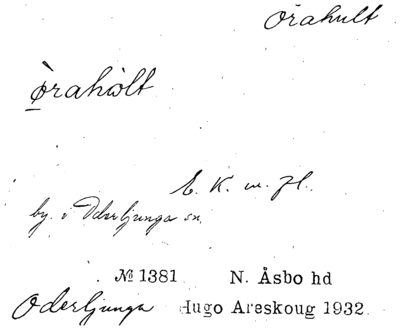 Orahult
òrahòlt
E. K. m. fl.
by. i Oderljunga sn.
№ 1381 N. Åsbo hd
Oderljunga Hugo Areskoug 1932